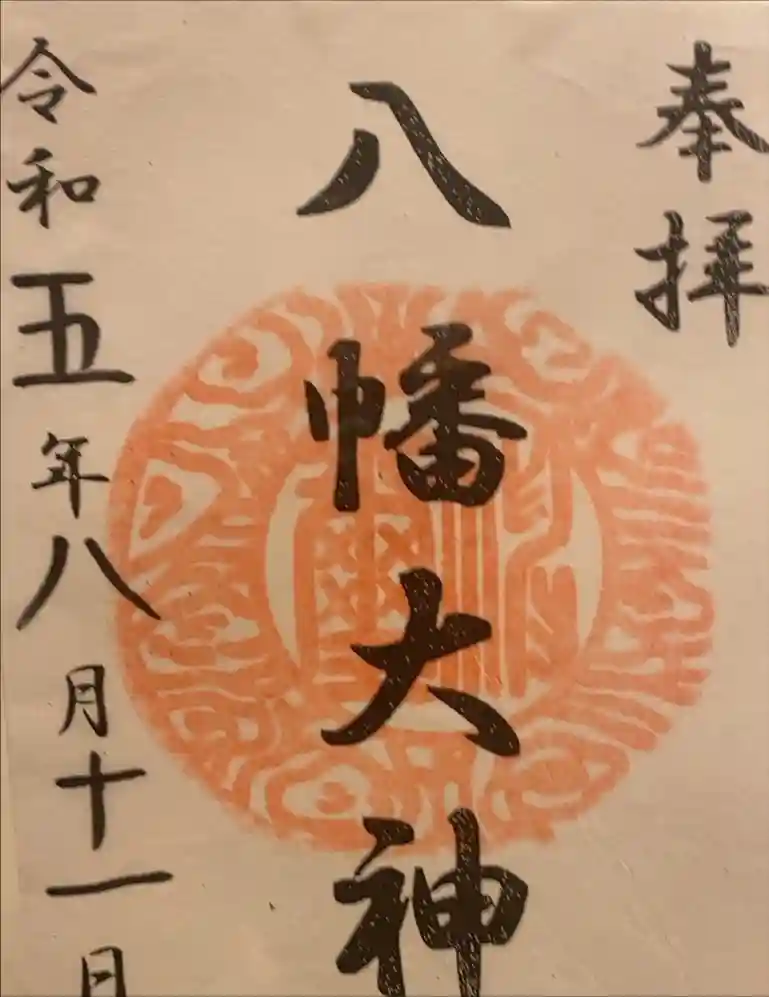 奉拝
八幡大神
令和五年八月十一日